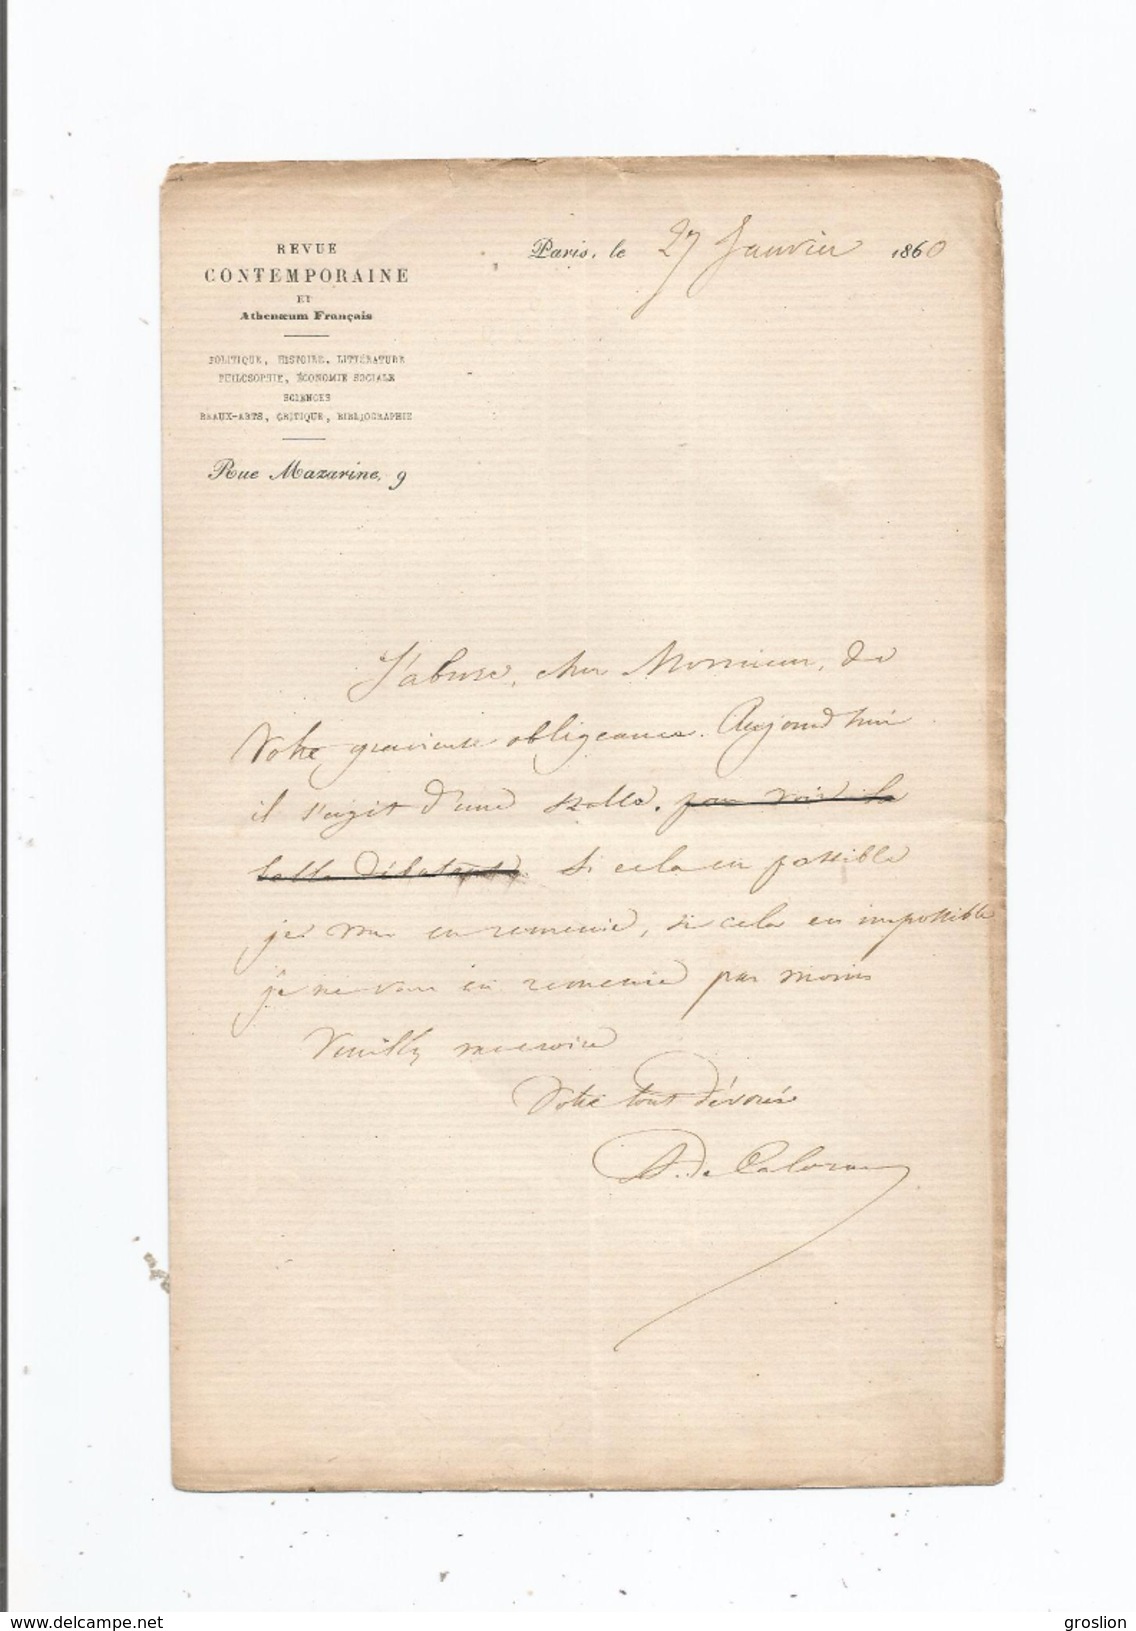 REVUE
CONTEMPORAINE
ET
Athenæum Français
POLITIQUE, HISTOIRE, LITTÉRATURE
PHILOSOPHIE, ÉCONOMIE SOCIALE
SCIENCES
BEAUX-ARTS, CRITIQUE, BIBLIOGRAPHIE
Rue Mazarine, 9
Paris, le 27 Janvier 1860
J'abuse, cher Monsieur, de
Votre gracieuse obligeance. Aujourd'hui
il s'agit d'une stalle. pour voir la
belle Si cela est possible
je vous en remercie, si cela est impossible
je ne vous en remercie pas moins
Veuillez me croire
Votre tout dévoué
A. de Calonne
delcampe.net
groslion